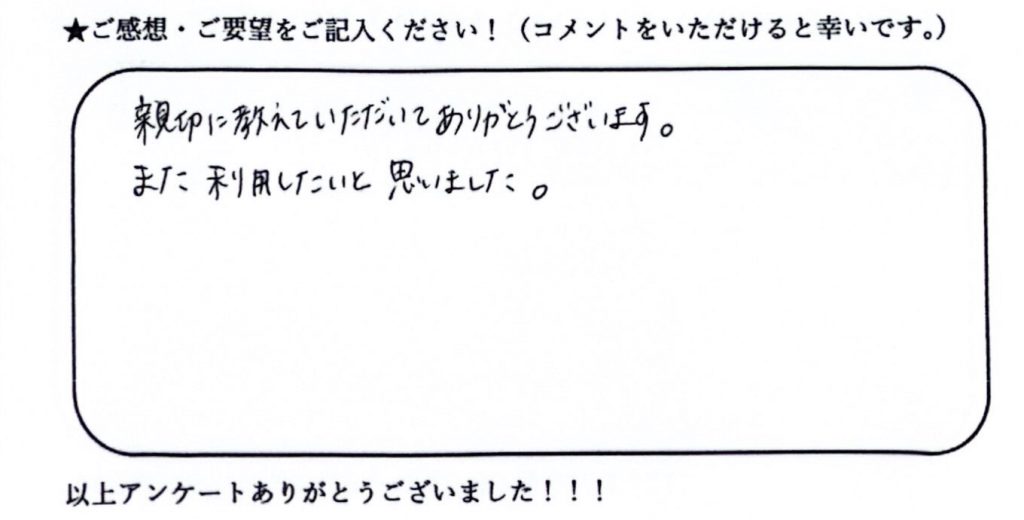 ★ご感想・ご要望をご記入ください！（コメントをいただけると幸いです。）
親切に教えていただいてありがとうございます。
また利用したいと思いました。
以上アンケートありがとうございました！！！